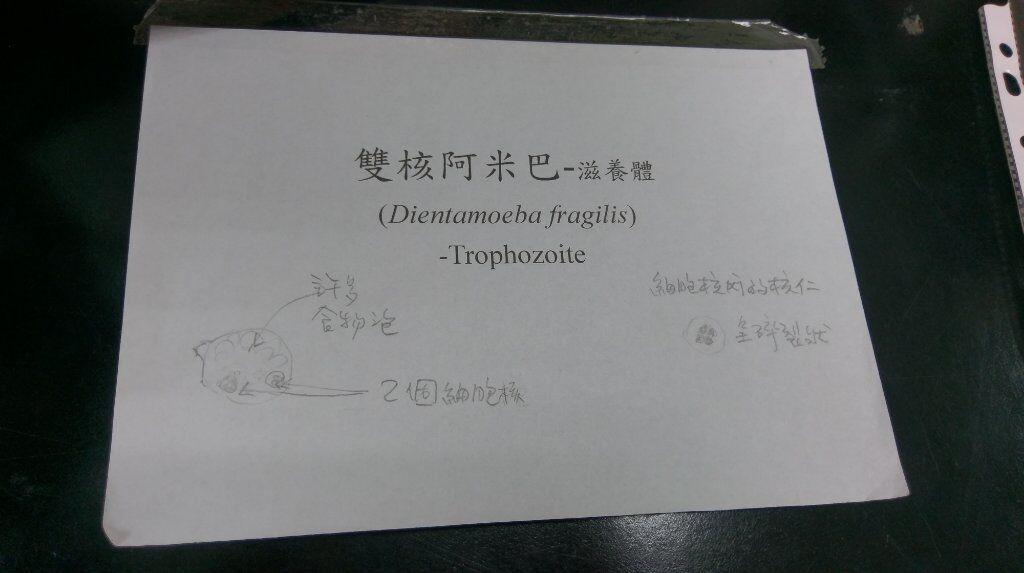 雙核阿米巴-滋養體
(Dientamoeba fragilis)
-Trophozoite
許多
食物泡
2個細胞核
細胞核內的核仁
呈碎裂狀